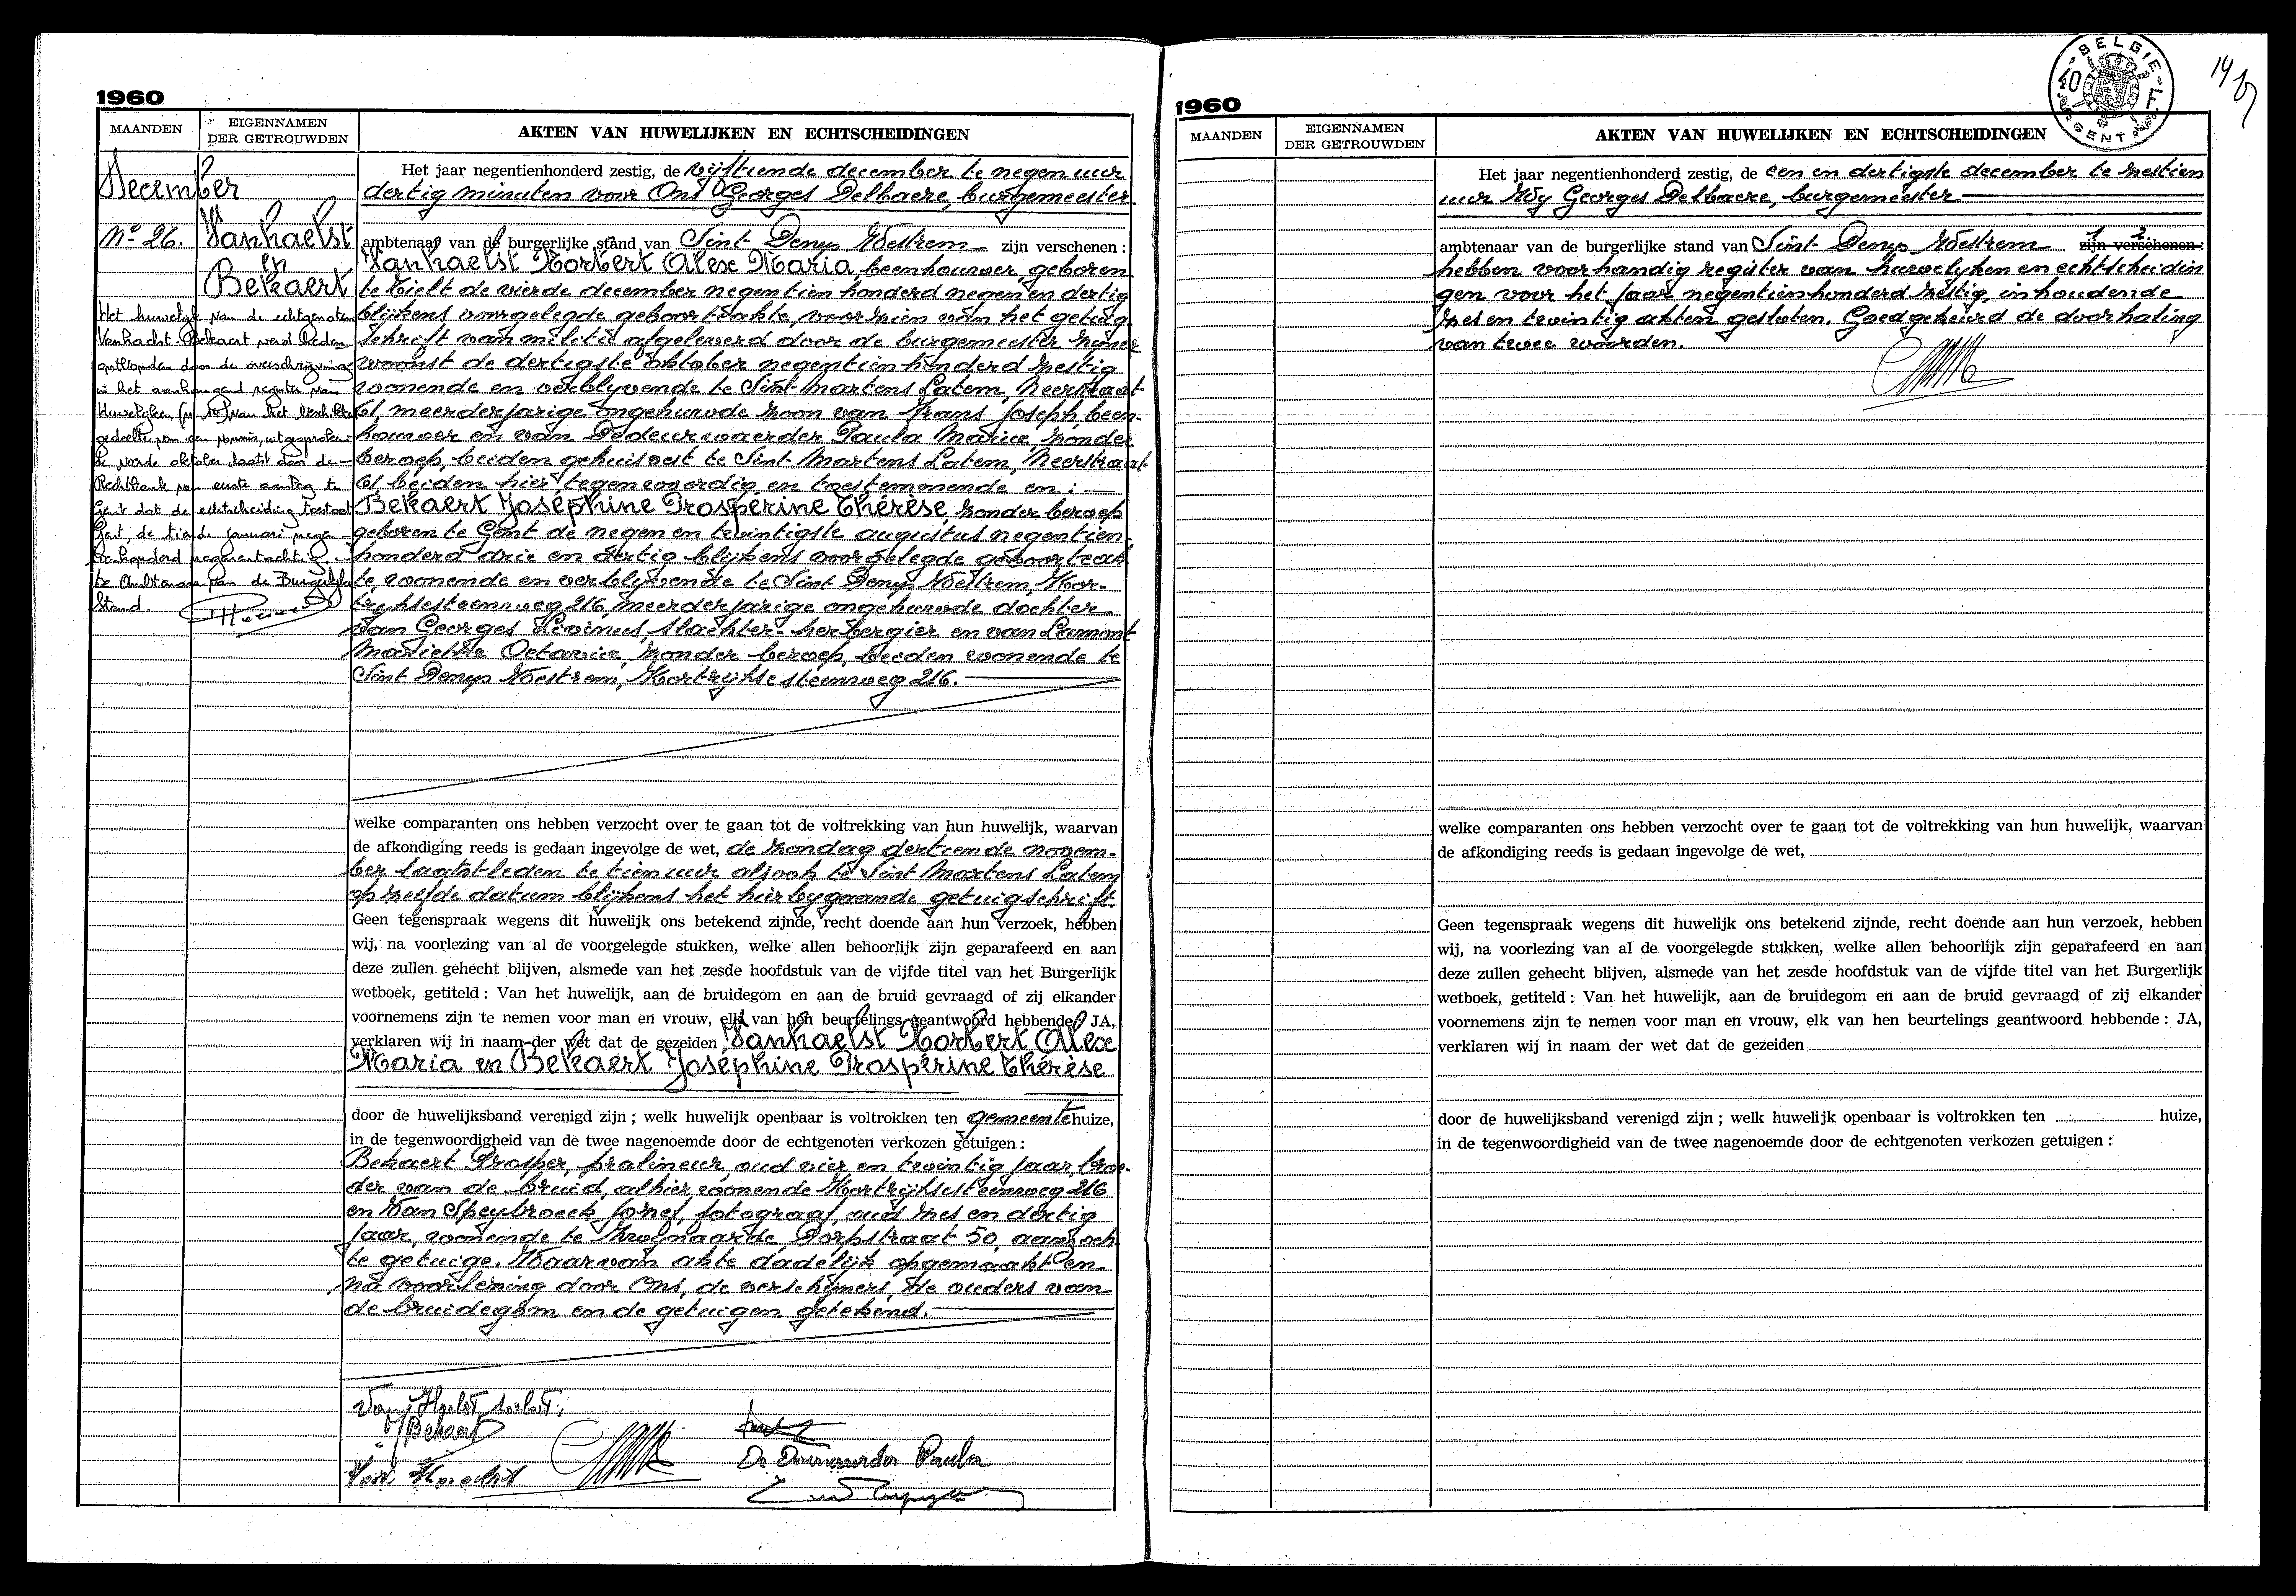 1960
MAANDEN
EIGENNAMEN
DER GETROUWDEN
AKTEN VAN HUWELIJKEN EN ECHTSCHEIDINGEN
December
Nº 26.
Vanhaelst
en
Bekaert
Het huwelijk van de echtgenoten
Vanhaelst-Bekaert werd heden
ontbonden door de overschrijving
in het aanhangend register van
Huwelijken (nr 10) van het beschikkend
gedeelte van een vonnis, uitgesproken
de vierde oktober laatst door de
Rechtbank van eerste aanleg te
Gent dat de echtscheiding toestaat
Gent, de tiende januari negen-
tienhonderd negenentachtig.
De Ambtenaar van de Burgerlijke
Stand.
Het jaar negentienhonderd zestig, de vijftiende december te negen uur
dertig minuten voor Ons Georges Delbaere, burgemeester
ambtenaar van de burgerlijke stand van Sint-Denijs Westrem zijn verschenen :
Vanhaelst Norbert Alex Maria, beenhouwer, geboren
te Tielt de vierde december negentien honderd negen en dertig
blijkens voorgelegde geboorteakte, voorzien van het getuig-
schrift van militie afgeleverd door de burgemeester zijner
woonst de dertigste oktober negentien honderd zestig
wonende en verblijvende te Sint-Martens Latem, Neerstraat
61, meerderjarige ongehuwde zoon van Frans Joseph, been-
houwer en van Dedeurwaerder Paula Maria, zonder
beroep, beiden gehuisvest te Sint-Martens Latem, Neerstraat
61 beiden hier tegenwoordig en toestemmende en :
Bekaert Joséphine Prospérine Thérèse, zonder beroep
geboren te Gent de negen en twintigste augustus negentien-
honderd drie en dertig blijkens voorgelegde geboorteak-
te, wonende en verblijvende te Sint Denijs Westrem, Kor-
trijksesteenweg 216, meerderjarige ongehuwde dochter
van Georges Livinus, slachter-herbergier en van Lamont
Mariette Octavia, zonder beroep, beiden wonende te
Sint Denijs Westrem, Kortrijkse steenweg 216.
welke comparanten ons hebben verzocht over te gaan tot de voltrekking van hun huwelijk, waarvan
de afkondiging reeds is gedaan ingevolge de wet, de zondag dertiende novem-
ber laatst-leden te tien uur alsook te Sint Martens Latem
op zelfde datum blijkens het hierbijgaande getuigschrift.
Geen tegenspraak wegens dit huwelijk ons betekend zijnde, recht doende aan hun verzoek, hebben
wij, na voorlezing van al de voorgelegde stukken, welke allen behoorlijk zijn geparafeerd en aan
deze zullen gehecht blijven, alsmede van het zesde hoofdstuk van de vijfde titel van het Burgerlijk
wetboek, getiteld : Van het huwelijk, aan de bruidegom en aan de bruid gevraagd of zij elkander
voornemens zijn te nemen voor man en vrouw, elk van hen beurtelings geantwoord hebbende : JA,
verklaren wij in naam der wet dat de gezeiden Vanhaelst Norbert Alex
Maria en Bekaert Joséphine Prospérine Thérèse
door de huwelijksband verenigd zijn ; welk huwelijk openbaar is voltrokken ten gemeentehuize,
in de tegenwoordigheid van de twee nagenoemde door de echtgenoten verkozen getuigen :
Bekaert Prosper, pralineur, oud vier en twintig jaar, broe-
der van de bruid, alhier wonende Kortrijksesteenweg 216
en Van Speybroeck Jozef, fotograaf, oud zes en dertig
jaar, wonende te Zwijnaarde, Dorpstraat 50, aanzoch-
te getuige. Waarvan akte dadelijk opgemaakt en
na voorlezing door Ons, de verschijners, de ouders van
de bruidegom en de getuigen getekend.
Van Haelst Norbert
J Bekaert
De Deurwaerder Paula
1960
MAANDEN
EIGENNAMEN
DER GETROUWDEN
AKTEN VAN HUWELIJKEN EN ECHTSCHEIDINGEN
BELGIE
40
GENT
Het jaar negentienhonderd zestig, de een en dertigste december te zestien
uur Wij Georges Delbaere, burgemeester
ambtenaar van de burgerlijke stand van Sint-Denijs Westrem 1 2 zijn verschenen :
hebben voorhandig register van huwelijken en echtscheidin
gen voor het jaar negentienhonderd zestig, inhoudende
zes en twintig akten gesloten. Goedgekeurd de doorhaling
van twee woorden.
welke comparanten ons hebben verzocht over te gaan tot de voltrekking van hun huwelijk, waarvan
de afkondiging reeds is gedaan ingevolge de wet,
Geen tegenspraak wegens dit huwelijk ons betekend zijnde, recht doende aan hun verzoek, hebben
wij, na voorlezing van al de voorgelegde stukken, welke allen behoorlijk zijn geparafeerd en aan
deze zullen gehecht blijven, alsmede van het zesde hoofdstuk van de vijfde titel van het Burgerlijk
wetboek, getiteld : Van het huwelijk, aan de bruidegom en aan de bruid gevraagd of zij elkander
voornemens zijn te nemen voor man en vrouw, elk van hen beurtelings geantwoord hebbende : JA,
verklaren wij in naam der wet dat de gezeiden
door de huwelijksband verenigd zijn ; welk huwelijk openbaar is voltrokken ten huize,
in de tegenwoordigheid van de twee nagenoemde door de echtgenoten verkozen getuigen :